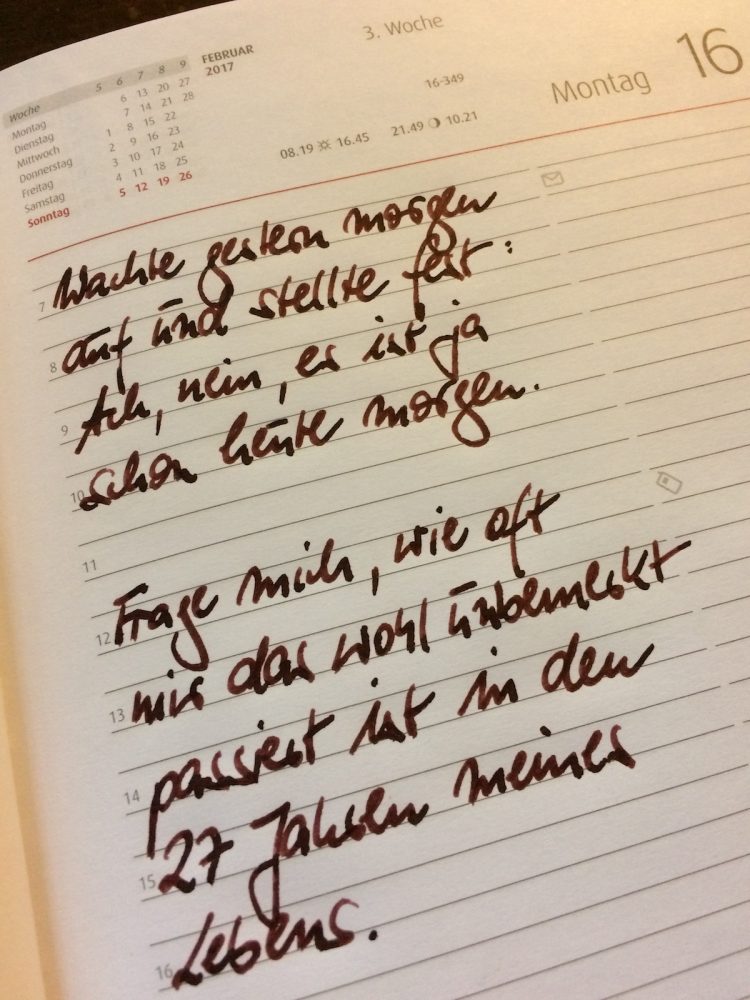 3. Woche
FEBRUAR
2017
Woche 5 6 7 8 9
Montag 6 13 20 27
Dienstag 7 14 21 28
Mittwoch 1 8 15 22
Donnerstag 2 9 16 23
Freitag 3 10 17 24
Samstag 4 11 18 25
Sonntag 5 12 19 26
16-349
08.19 16.45 21.49 10.21
Montag 16
7 Wachte gestern morgen
8 auf und stellte fest:
9 Ach, nein, es ist ja
10 schon heute morgen.
11
12 Frage mich, wie oft
13 mir das wohl unbemerkt
14 passiert ist in den
15 27 Jahren meines
16 Lebens.